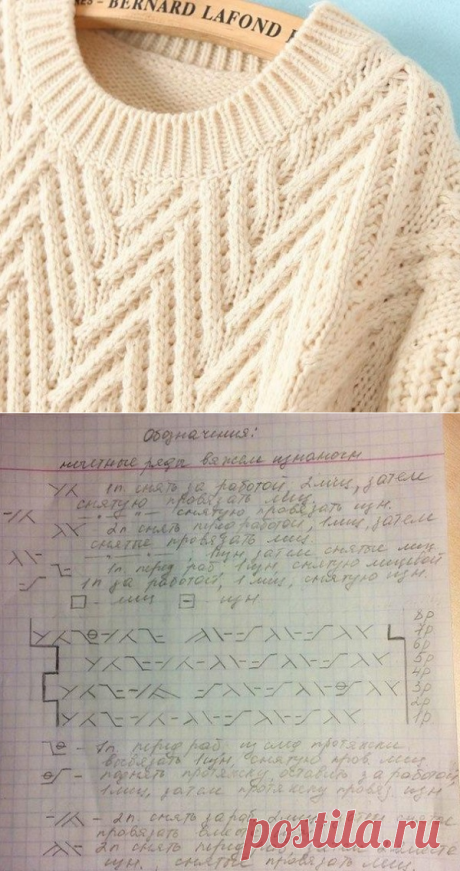 BERNARD LAFOND
Обозначения:
четные ряды вяжем изнаночн
1п. снять за работой, 2 лиц, затем
снятую провязать лиц.
снятую провязать изн.
2п снять перед работой, 1 лиц, затем
снятые провязать лиц.
1 изн, затем снятые лиц
1п перед раб, 1 изн, снятую лицевой
1п за работой, 1 лиц, снятую изн.
- лиц - изн
8р
7р
6р
5р
4р
3р
2р
1р
- 1п перед раб. из протяжки
вывязать 1 изн, снятую пров. лиц
- поднять протяжку, оставить за работой,
1 лиц, затем протяжку провяз. изн
- 2п. снять за раб. 2 лиц
провязать вместе
2п снять перед вместе
изн., снятые провязать лиц.
postila.ru